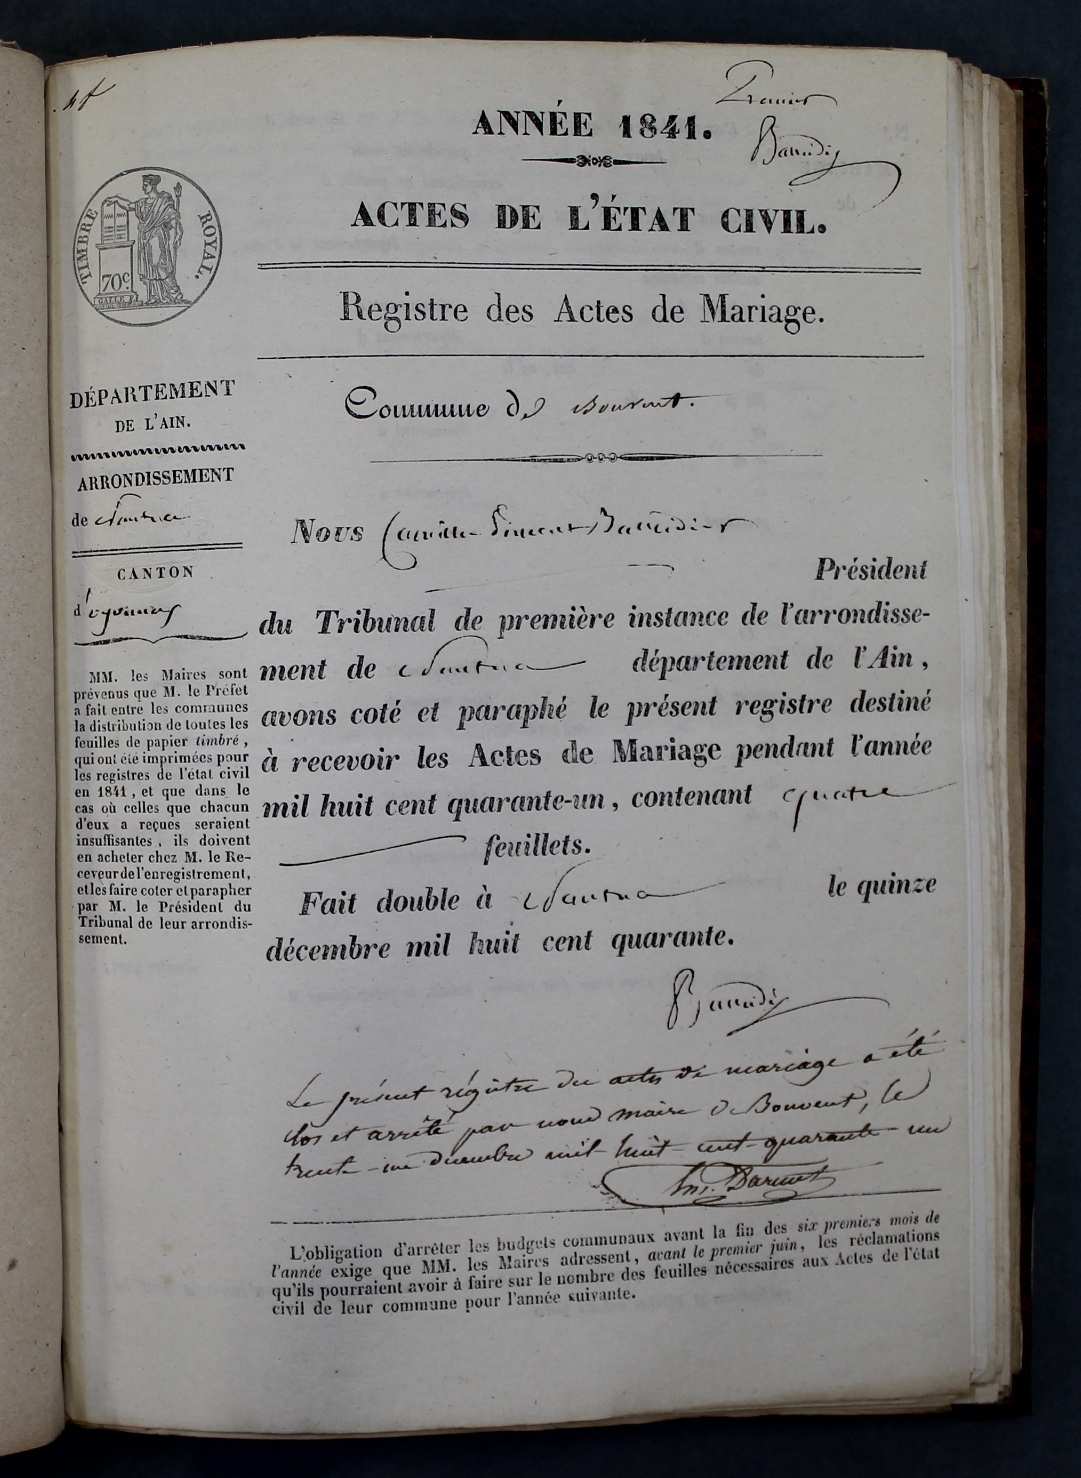 Premier
ANNÉE 1841.
ACTES DE L'ÉTAT CIVIL.
TIMBRE ROYAL.
70c
Registre des Actes de Mariage.
DÉPARTEMENT
DE L'AIN.
ARRONDISSEMENT
de Nantua
CANTON
d'oyonnax
MM. les Maires sont
prévenus que M. le Préfet
a fait entre les communes
la distribution de toutes les
feuilles de papier timbré,
qui ont été imprimées pour
les registres de l'état civil
en 1841, et que dans le
cas où celles que chacun
d'eux a reçues seraient
insuffisantes, ils doivent
en acheter chez M. le Re-
ceveur de l'enregistrement,
et les faire coter et parapher
par M. le Président du
Tribunal de leur arrondis-
sement.
Commune de Bouvent.
Nous Camille
Président
du Tribunal de première instance de l'arrondisse-
ment de Nantua département de l'Ain,
avons coté et paraphé le présent registre destiné
à recevoir les Actes de Mariage pendant l'année
mil huit cent quarante-un, contenant quatre
feuillets.
Fait double à Nantua le quinze
décembre mil huit cent quarante.
Le présent régistre des actes de mariage a été
clos et arrêté par nous maire de Bouvent, le
trente-un décembre mil huit-cent-quarante-un
L'obligation d'arrêter les budgets communaux avant la fin des six premiers mois de
l'année exige que MM. les Maires adressent, avant le premier juin, les réclamations
qu'ils pourraient avoir à faire sur le nombre des feuilles nécessaires aux Actes de l'état
civil de leur commune pour l'année suivante.